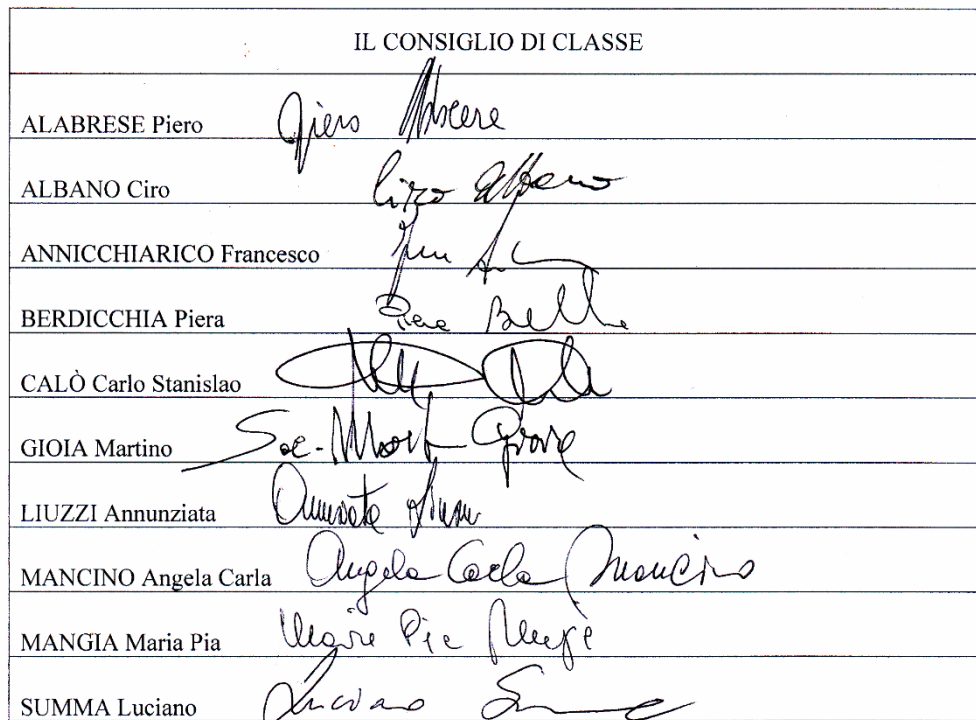 IL CONSIGLIO DI CLASSE
ALABRESE Piero Piero
ALBANO Ciro Ciro Albano
ANNICCHIARICO Francesco
BERDICCHIA Piera Piera
CALÒ Carlo Stanislao
GIOIA Martino
LIUZZI Annunziata Annunziata
MANCINO Angela Carla Angela Carla Mancino
MANGIA Maria Pia Maria Pia
SUMMA Luciano Luciano